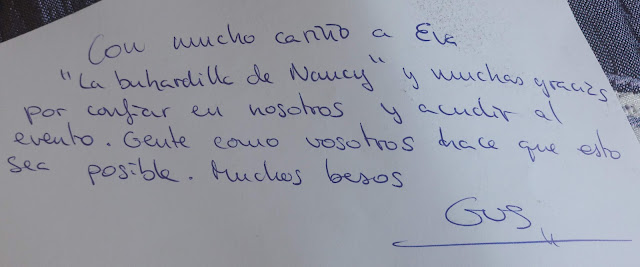 Con mucho cariño a Eva
"La buhardilla de Nancy" y muchas gracias
por confiar en nosotros y acudir al
evento. Gente como vosotros hace que esto
sea posible. Muchos besos
Gus